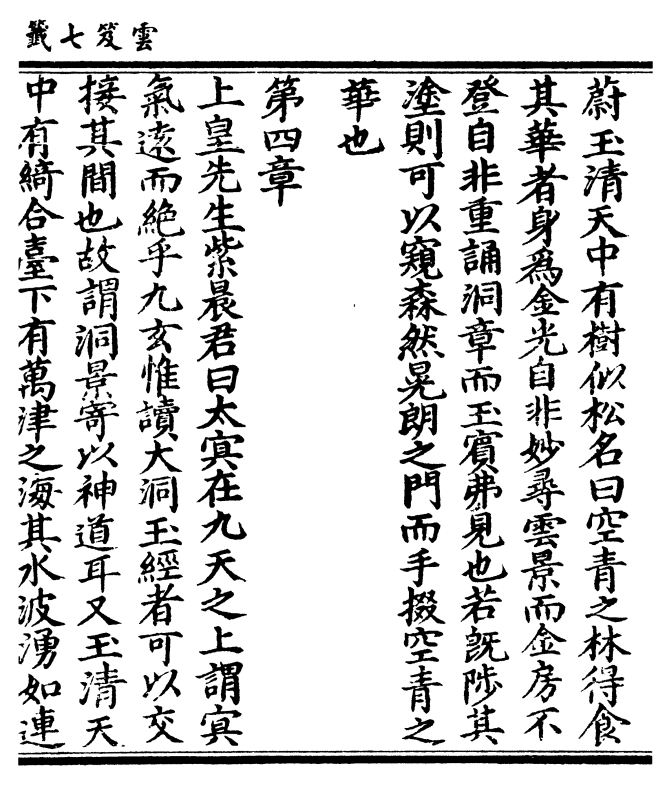 雲笈七籤
蔚玉清天中有樹似松名曰空青之林得食
其華者身爲金光自非妙尋雲景而金房不
登自非重誦洞章而玉賓弗見也若旣陟其
塗則可以窺森然晃朗之門而手掇空青之
華也
第四章
上皇先生紫晨君曰太冥在九天之上謂冥
氣遠而絶乎九玄惟讀大洞玉經者可以交
接其間也故謂洞景寄以神道耳又玉清天
中有綺合臺下有萬津之海其水波湧如連